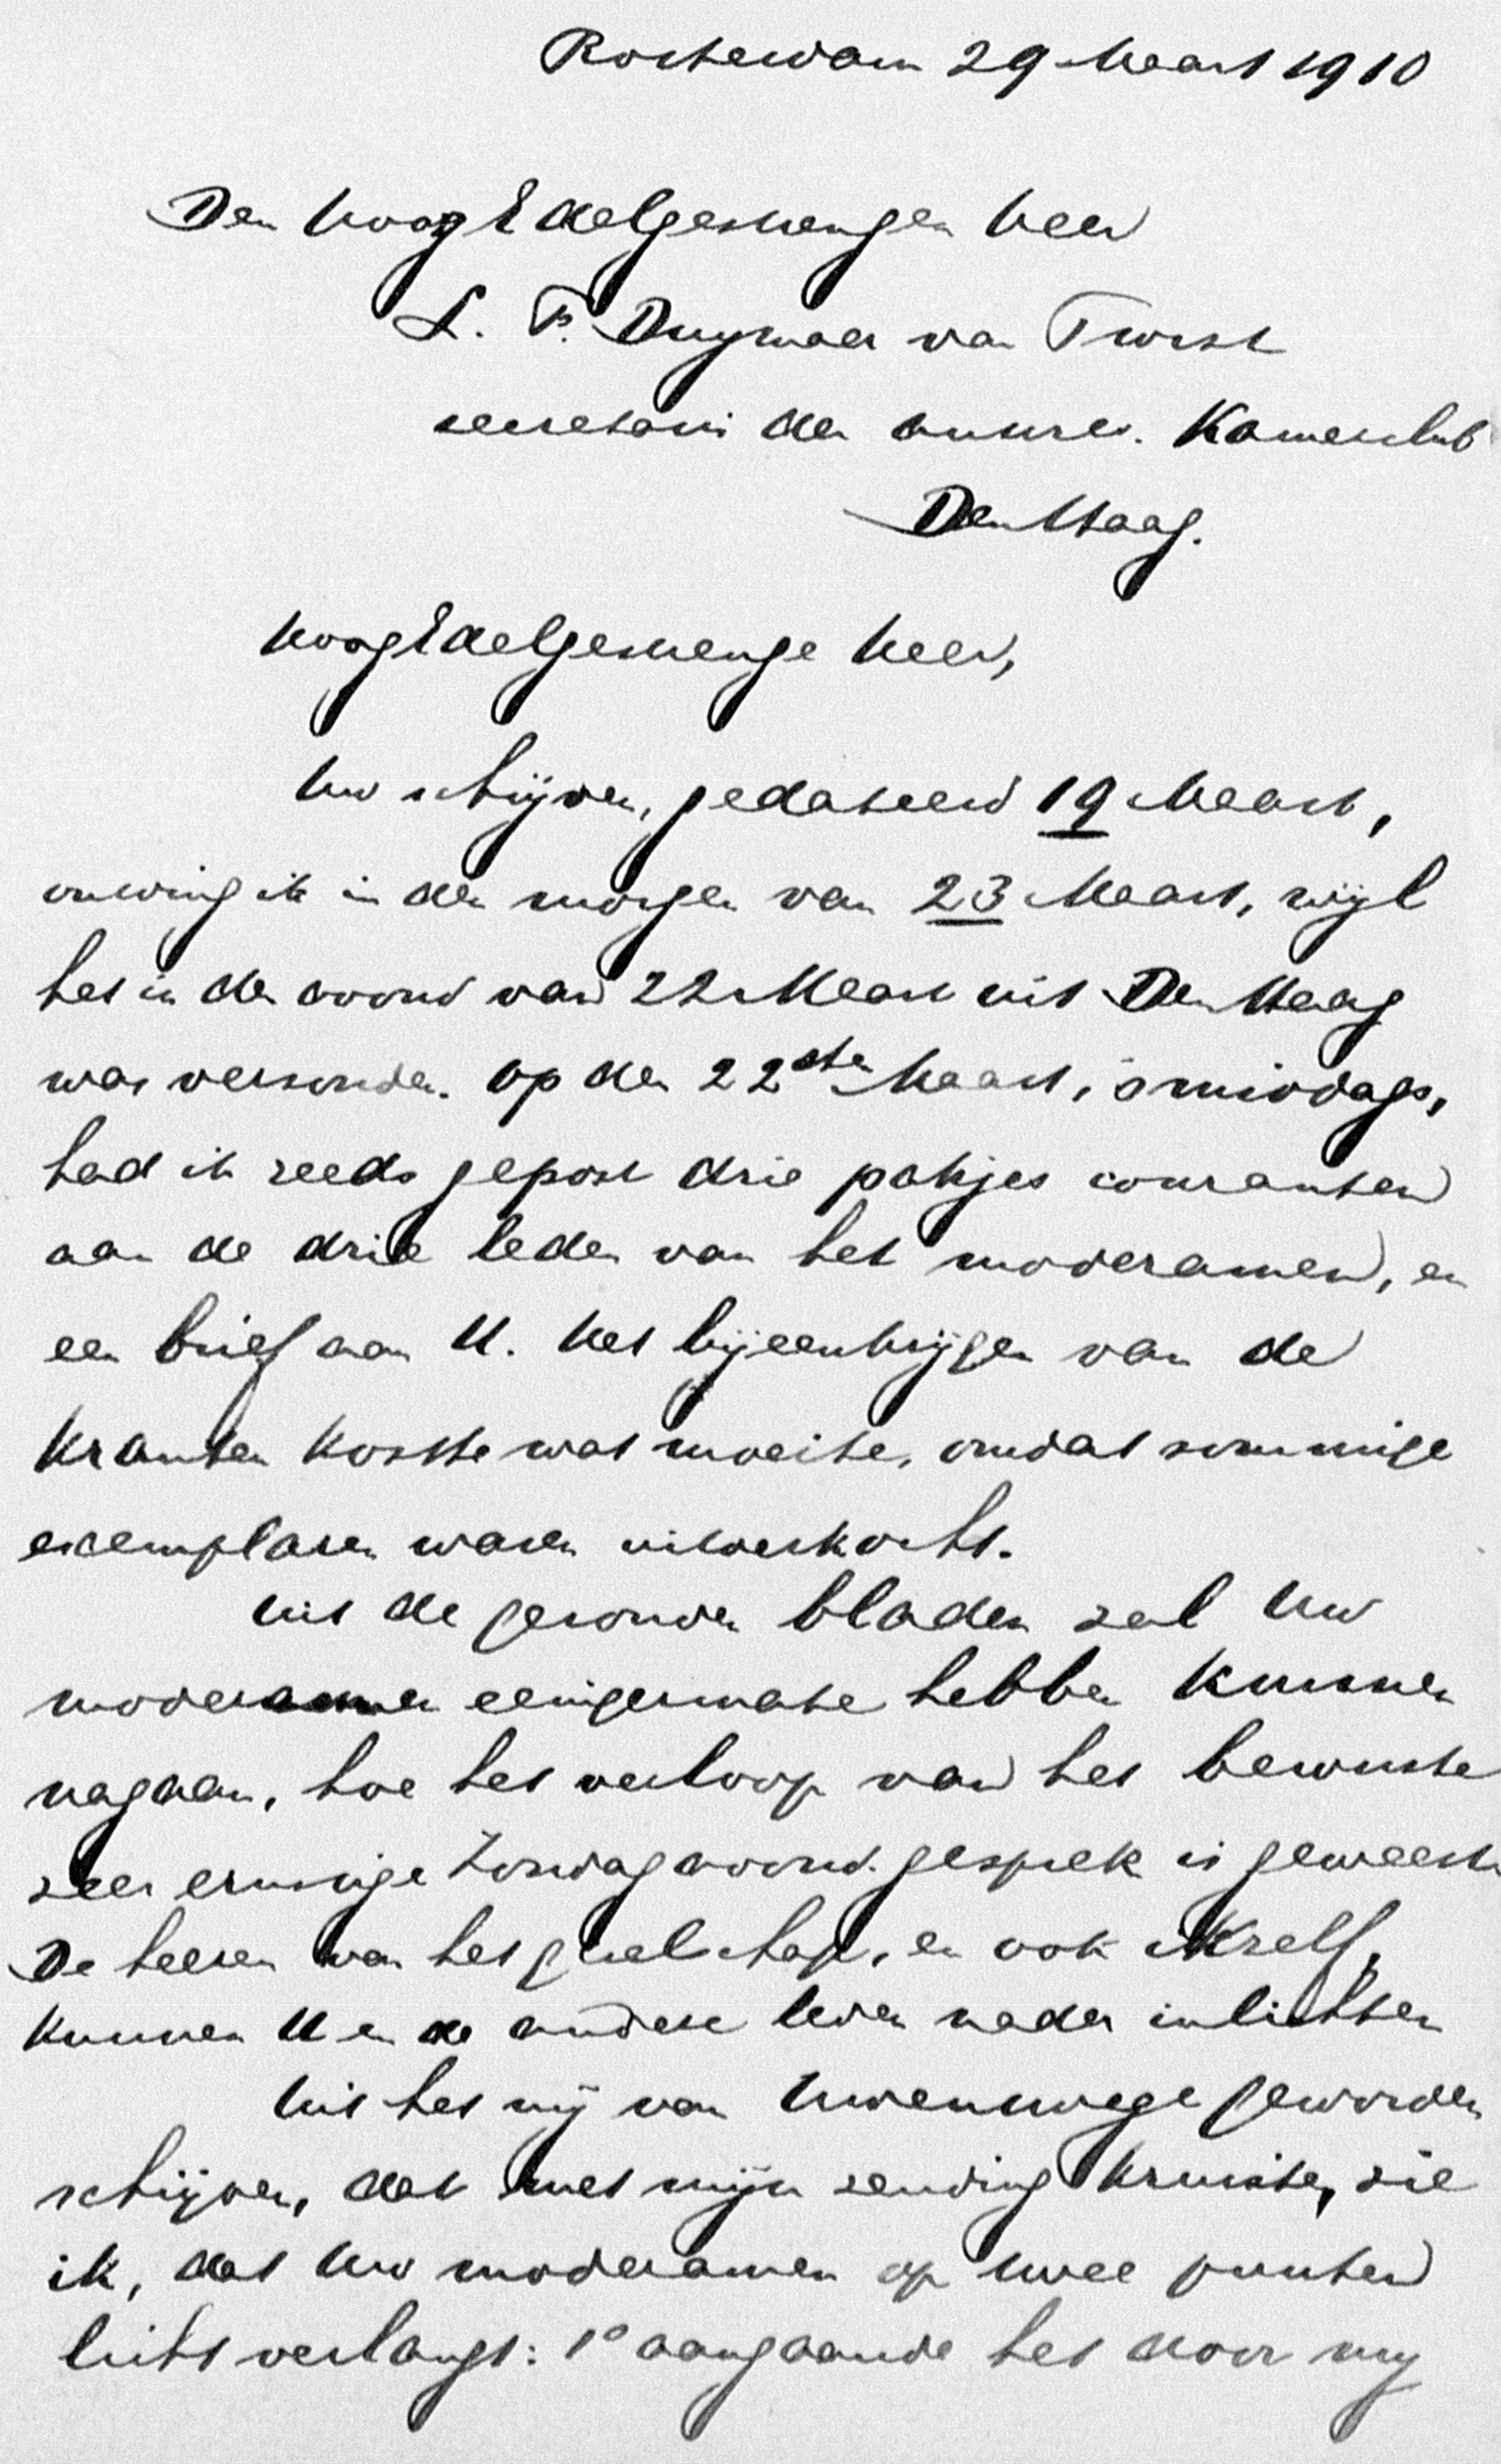 Rotterdam 29 Maart 1910
Den HoogEdelgestrengen Heer
L. F. Duymaer van Twist
secretaris der antirev. Kamerclub
Den Haag.
HoogEdelgestrenge Heer,
Uw schrijven, gedateerd 19 Maart,
ontving ik in den morgen van 23 Maart, wijl
het in den avond van 22 Maart uit Den Haag
was verzonden. Op den 22sten Maart, 's middags,
had ik reeds gepost drie pakjes couranten
aan de drie leden van het moderamen, en
een brief aan U. Het bijeenkrijgen van de
kranten kostte wat moeite, omdat sommige
exemplaren waren uitverkocht.
Uit de gezonden bladen zal Uw
moderamen eenigermate hebben kunnen
nagaan, hoe het verloop van het bewuste
zeer ernstige Zondagavond-gesprek is geweest.
De heeren van het gezelschap, en ook ikzelf,
kunnen U en de andere leden nader inlichten
Uit het mij van Uwentwege geworden
schrijven, dat met mijn zending kruiste, zie
ik, dat Uw moderamen op twee punten
licht verlangt: 1o aangaande het door mij